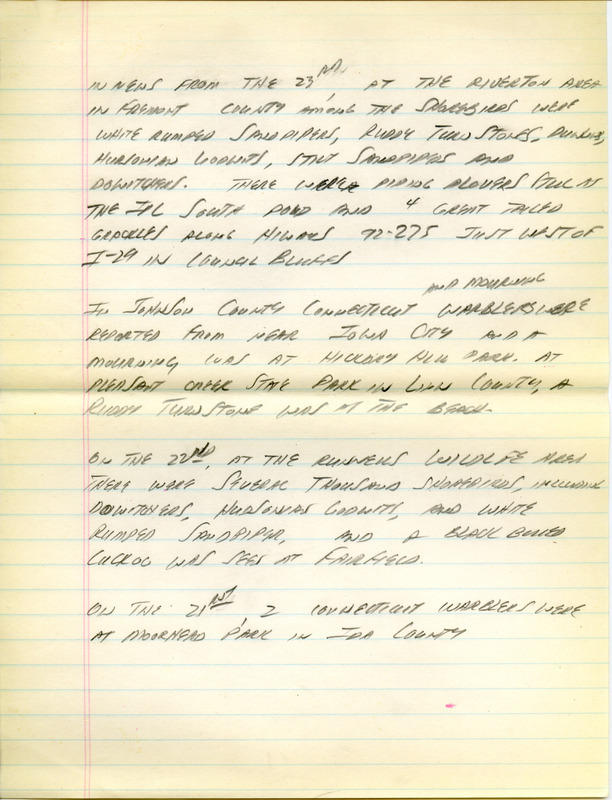 IN NEWS FROM THE 23RD, AT THE RIVERTON AREA
IN FREMONT COUNTY AMONG THE SHOREBIRDS WERE
WHITE RUMPED SANDPIPERS, RUDDY TURNSTONES, DUNLIN,
HUDSONIAN GODWITS, STILT SANDPIPERS AND
DOWITCHERS. THERE WERE PIPING PLOVERS STILL AT
THE IPL SOUTH POND AND 4 GREAT TAILED
GRACKLES ALONG HIWAYS 92-275 JUST WEST OF
I-29 IN COUNCIL BLUFFS
AND MOURNING
IN JOHNSON COUNTY CONNECTICUT WARBLERS WERE
REPORTED FROM NEAR IOWA CITY AND A
MOURNING WAS AT HICKORY HILL PARK. AT
PLEASANT CREEK STATE PARK IN LINN COUNTY, A
RUDDY TURNSTONE WAS AT THE BEACH.
ON THE 22ND, AT THE RUNNELLS WILDLIFE AREA
THERE WERE SEVERAL THOUSAND SHOREBIRDS, INCLUDING
DOWITCHERS, HUDSONIAN GODWITS, AND WHITE
RUMPED SANDPIPER, AND A BLACK BILLED
CUCKOO WAS SEEN AT FAIRFIELD.
ON THE 21ST, 2 CONNECTICUT WARBLERS WERE
AT MOORHEAD PARK IN IDA COUNTY